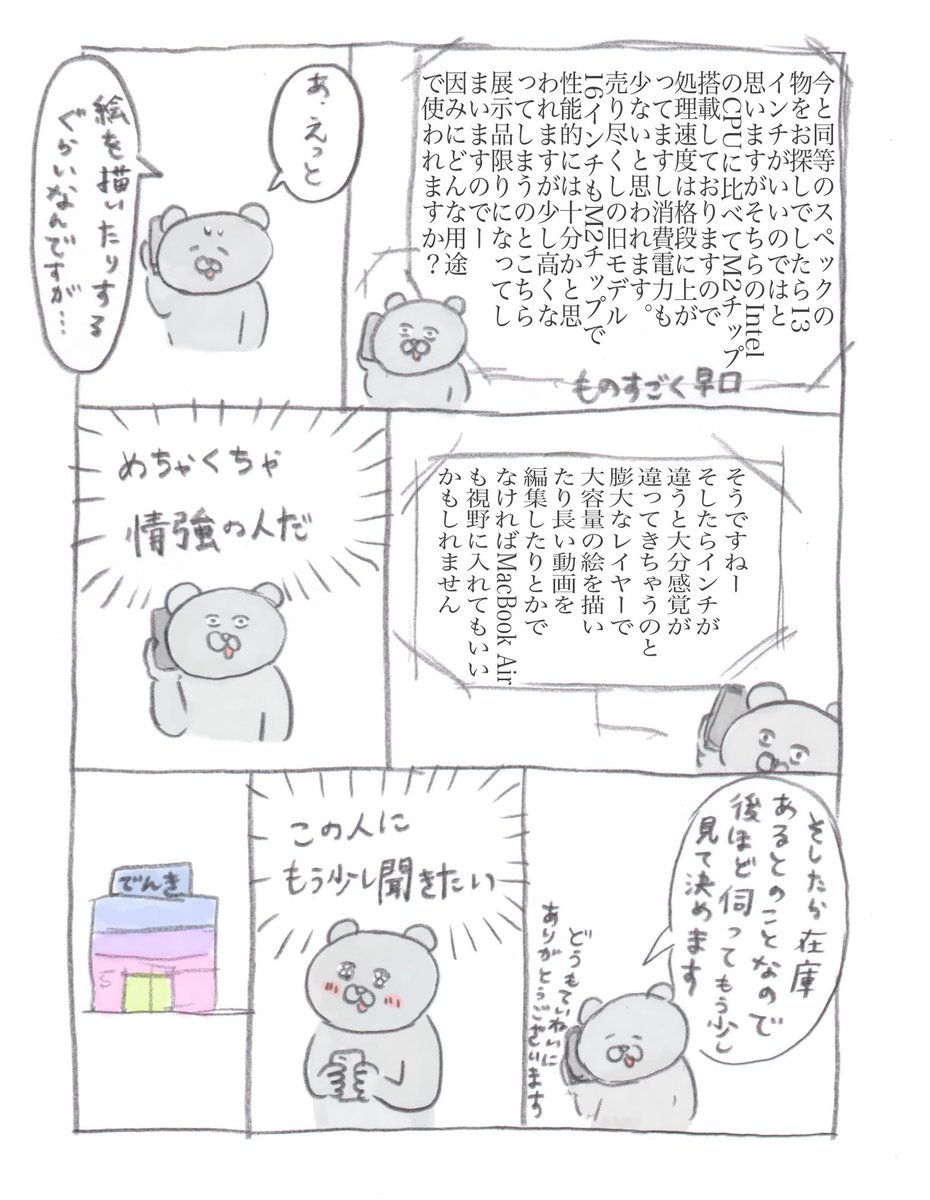 今と同等のスペックの
物をお探しでしたら13
インチがいいのではと
思いますがそちらのIntel
のCPUに比べてM2チップ
搭載しておりますので
処理速度は格段に上が
ってますし消費電力も
少ないと思われます。
売り尽くしの旧モデル
16インチもM2チップで
性能的には十分かと思
われますが少し高くな
ってしまうのとこちら
展示品限りになってし
まいますのでー
因みにどんな用途
で使われますか？
ものすごく早口
あ、えっと
絵を描いたりする
ぐらいなんですが…
そうですねー
そしたらインチが
違うと大分感覚が
違ってきちゃうのと
膨大なレイヤーで
大容量の絵を描い
たり長い動画を
編集したりとかで
なければMacBook Air
も視野に入れてもいい
かもしれません
めちゃくちゃ
情強の人だ
そしたら在庫
あるとのことなので
後ほど伺ってもう少し
見て決めます
どうもていねいに
ありがとうございます
この人に
もう少し聞きたい
でんき